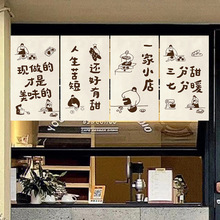 现做的
才是
美味的
人生苦短
还好有甜
一家小店
三分甜
七分暖